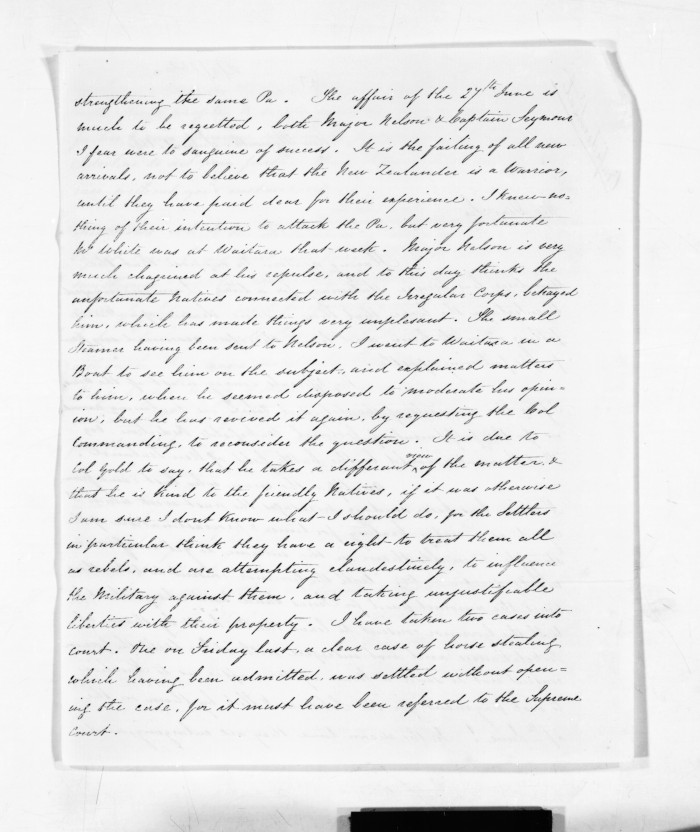 strengthening the same Pa. The affair of the 27th June is
much to be regretted, both Major Nelson & Captain Seymour
I fear were to sanguine of success. It is the failing of all new
arrivals, not to believe that the New Zealander is a Warrior,
until they have paid dear for their experience. I knew no=
thing of their intention to attack the Pa, but very fortunate
Mr White was at Waitara that week. Major Nelson is very
much chagined at his repulse, and to this day thinks the
unfortunate Natives connected with the Irregular Corps, betrayed
him, which has made things very unplesant. The small
Steamer having been sent to Nelson, I went to Waitara in a
Boat to see him on the subject, and explained matters
to him, when he seemed disposed to moderate his opin=
ion, but he has revived it again, by requesting the Col
Commanding, to reconsider the question. It is due to
Col Gold to say, that he takes a different view of the matter, &
that he is kind to the friendly Natives, if it was otherwise
I am sure I dont know what I should do, for the Settlers
in particular think they have a right to treat them all
as rebels, and are attempting clandestinely, to influence
the Military against them, and taking unjustifiable
liberties with their property. I have taken two cases into
court. One on Friday last, a clear case of horse stealing
which having been admitted, was settled without open=
ing the case, for it must have been referred to the Supreme
Court.